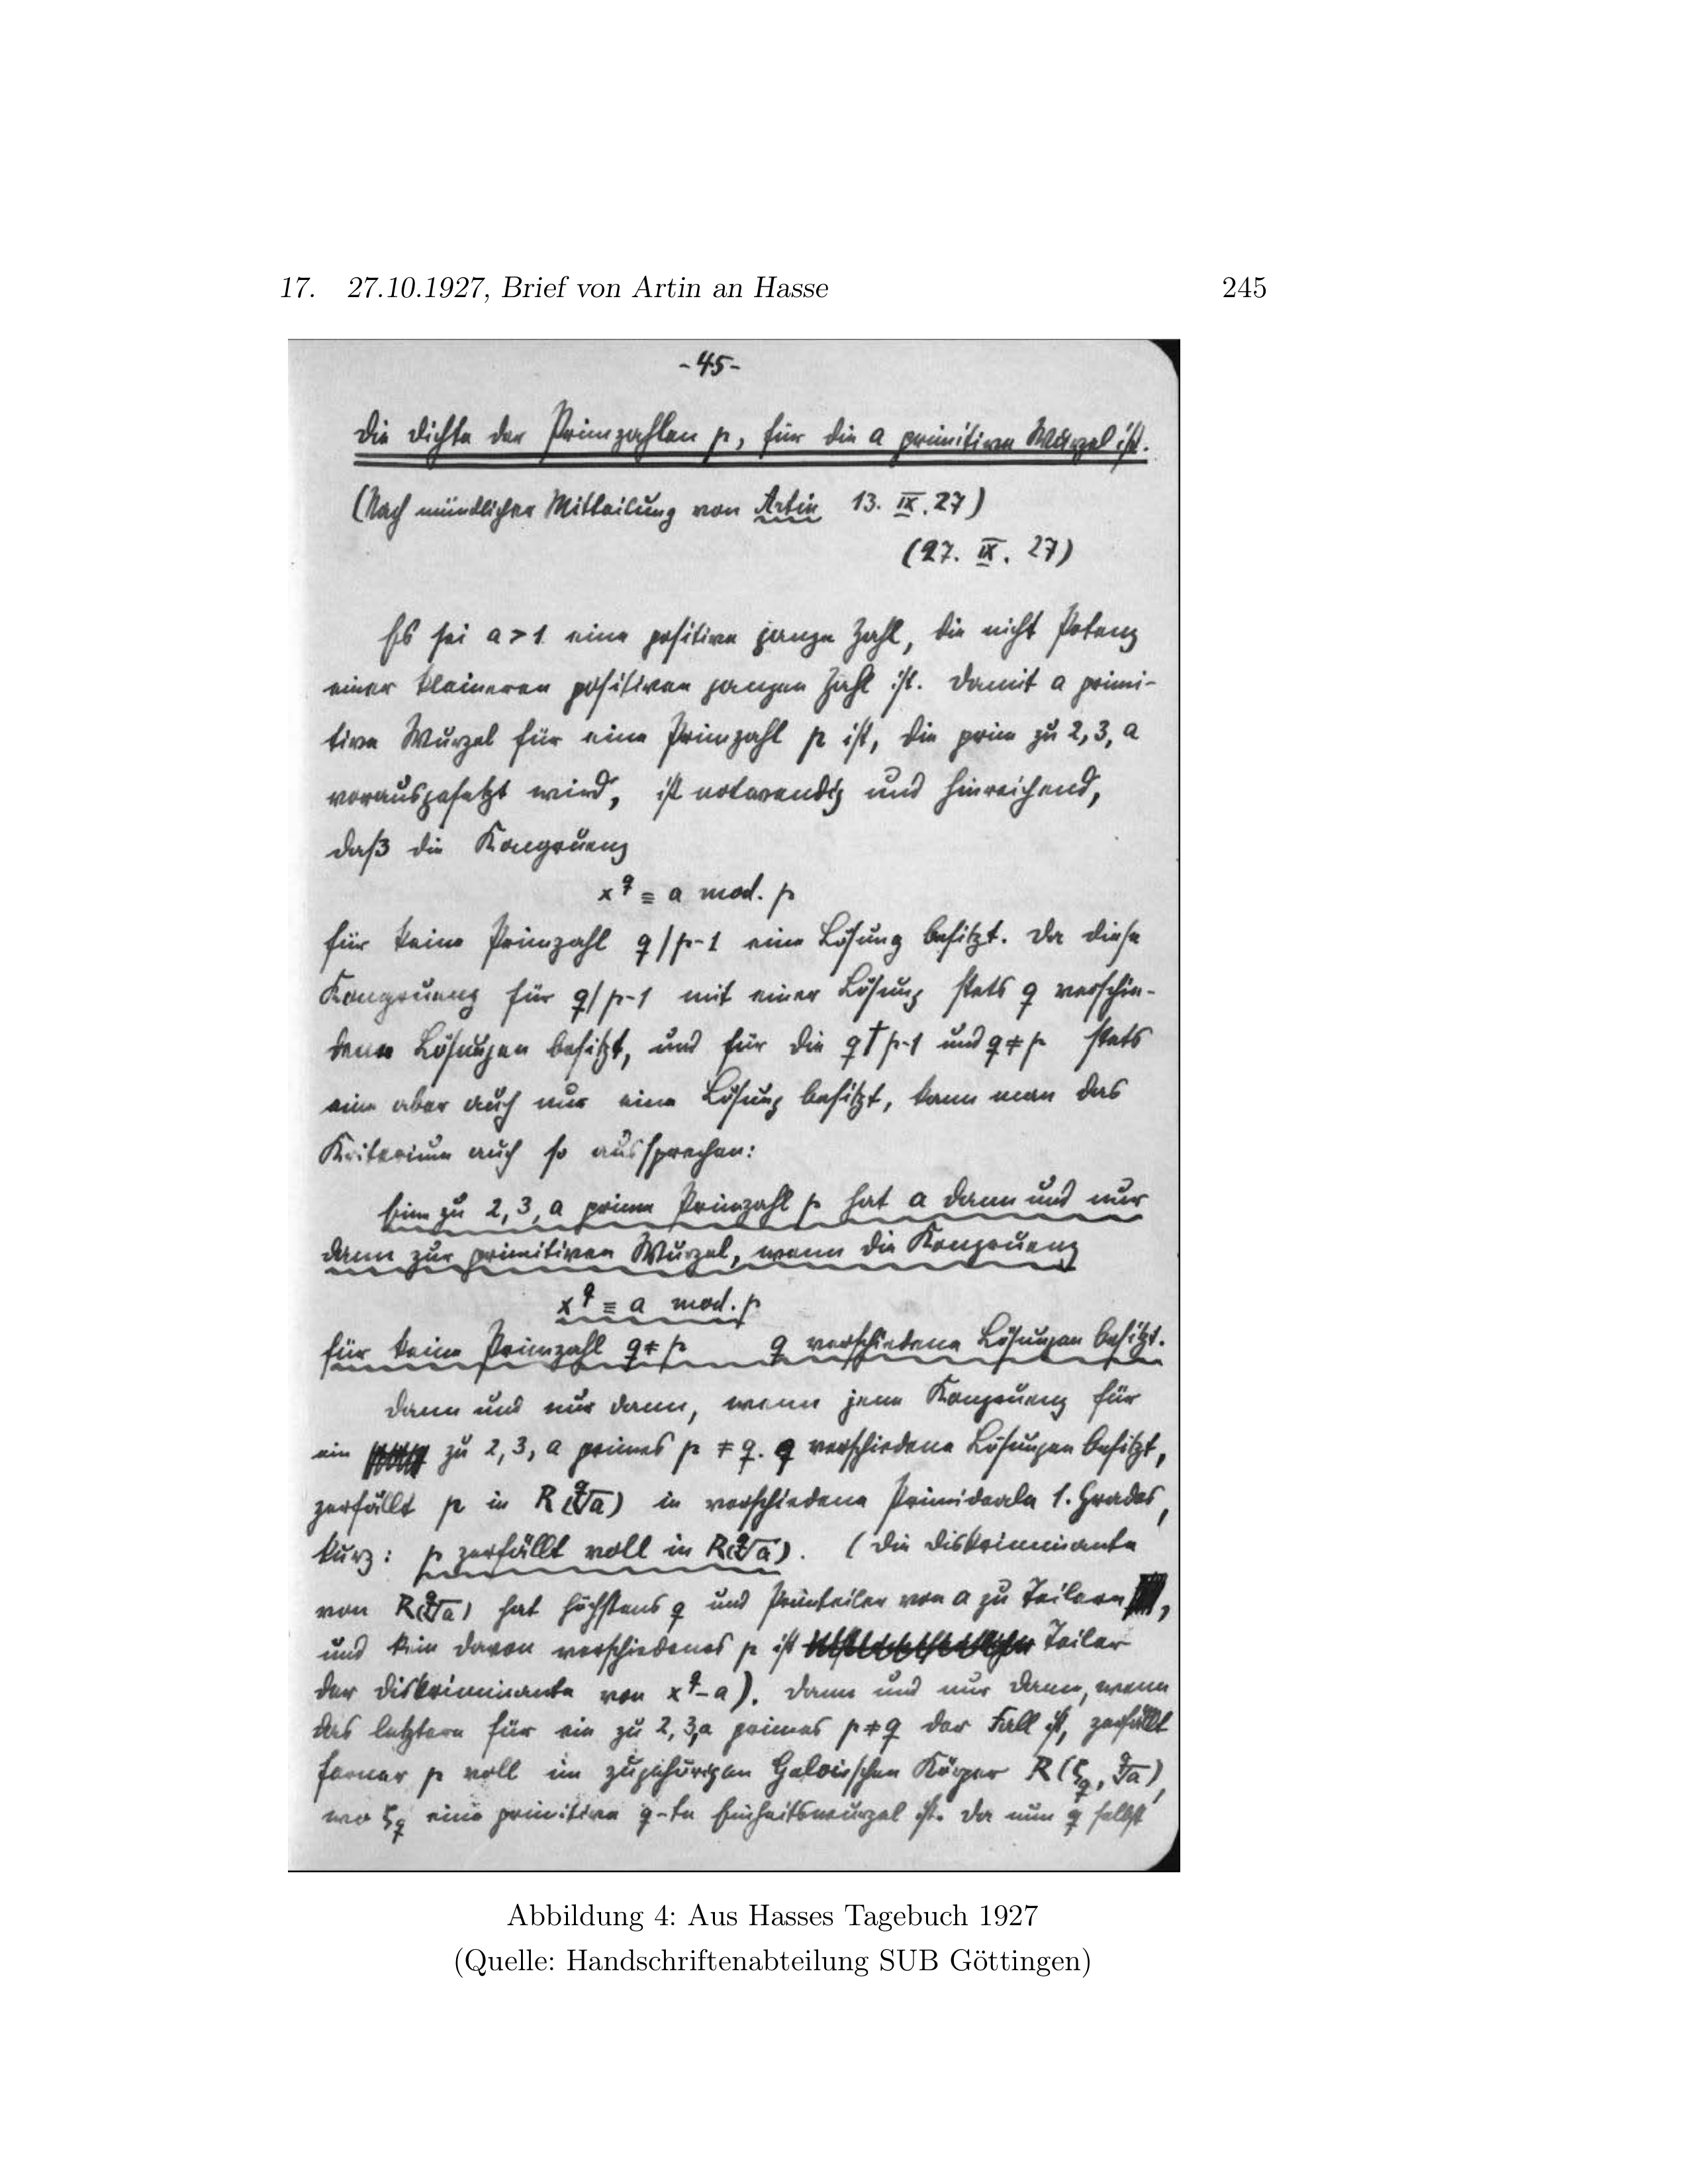 17. 27.10.1927, Brief von Artin an Hasse 245
-45-
Die Dichte der Primzahlen p, für die a primitive Wurzel ist.
(Nach mündlicher Mitteilung von Artin 13. IX. 27)
(27. IX. 27)
Es sei a > 1 eine positive ganze Zahl, die nicht Potenz
einer kleineren positiven ganzen Zahl ist. Damit a primi-
tive Wurzel für eine Primzahl p ist, die prim zu 2, 3, a
vorausgesetzt wird, ist notwendig und hinreichend,
daß die Kongruenz
x^q ≡ a mod. p
für keine Primzahl q | p-1 eine Lösung besitzt. Da diese
Kongruenz für q | p-1 mit einer Lösung stets q verschie-
dene Lösungen besitzt, und für die q ∤ p-1 und q ≠ p stets
eine aber auch nur eine Lösung besitzt, kann man das
Kriterium auch so aussprechen:
Eine zu 2, 3, a prime Primzahl p hat a dann und nur
dann zur primitiven Wurzel, wenn die Kongruenz
x^q ≡ a mod. p
für keine Primzahl q ≠ p q verschiedene Lösungen besitzt.
Dann und nur dann, wenn jene Kongruenz für
ein zu 2, 3, a primes p ≠ q. q verschiedene Lösungen besitzt,
zerfällt p in R(\sqrt[q]{a}) in verschiedene Primideale 1. Grades,
kurz: p zerfällt voll in R(\sqrt[q]{a}). (Die Diskriminante
von R(\sqrt[q]{a}) hat höchstens q und Primteiler von a zu Teilern,
und kein davon verschiedenes p ist Teiler
der Diskriminante von x^q - a). Dann und nur dann, wenn
das letztere für ein zu 2, 3, a primes p ≠ q der Fall ist, zerfällt
ferner p voll im zugehörigen Galoisschen Körper R(ζ_q, \sqrt[q]{a}),
wo ζ_q eine primitive q-te Einheitswurzel ist. Da nun q selbst
Abbildung 4: Aus Hasses Tagebuch 1927
(Quelle: Handschriftenabteilung SUB Göttingen)